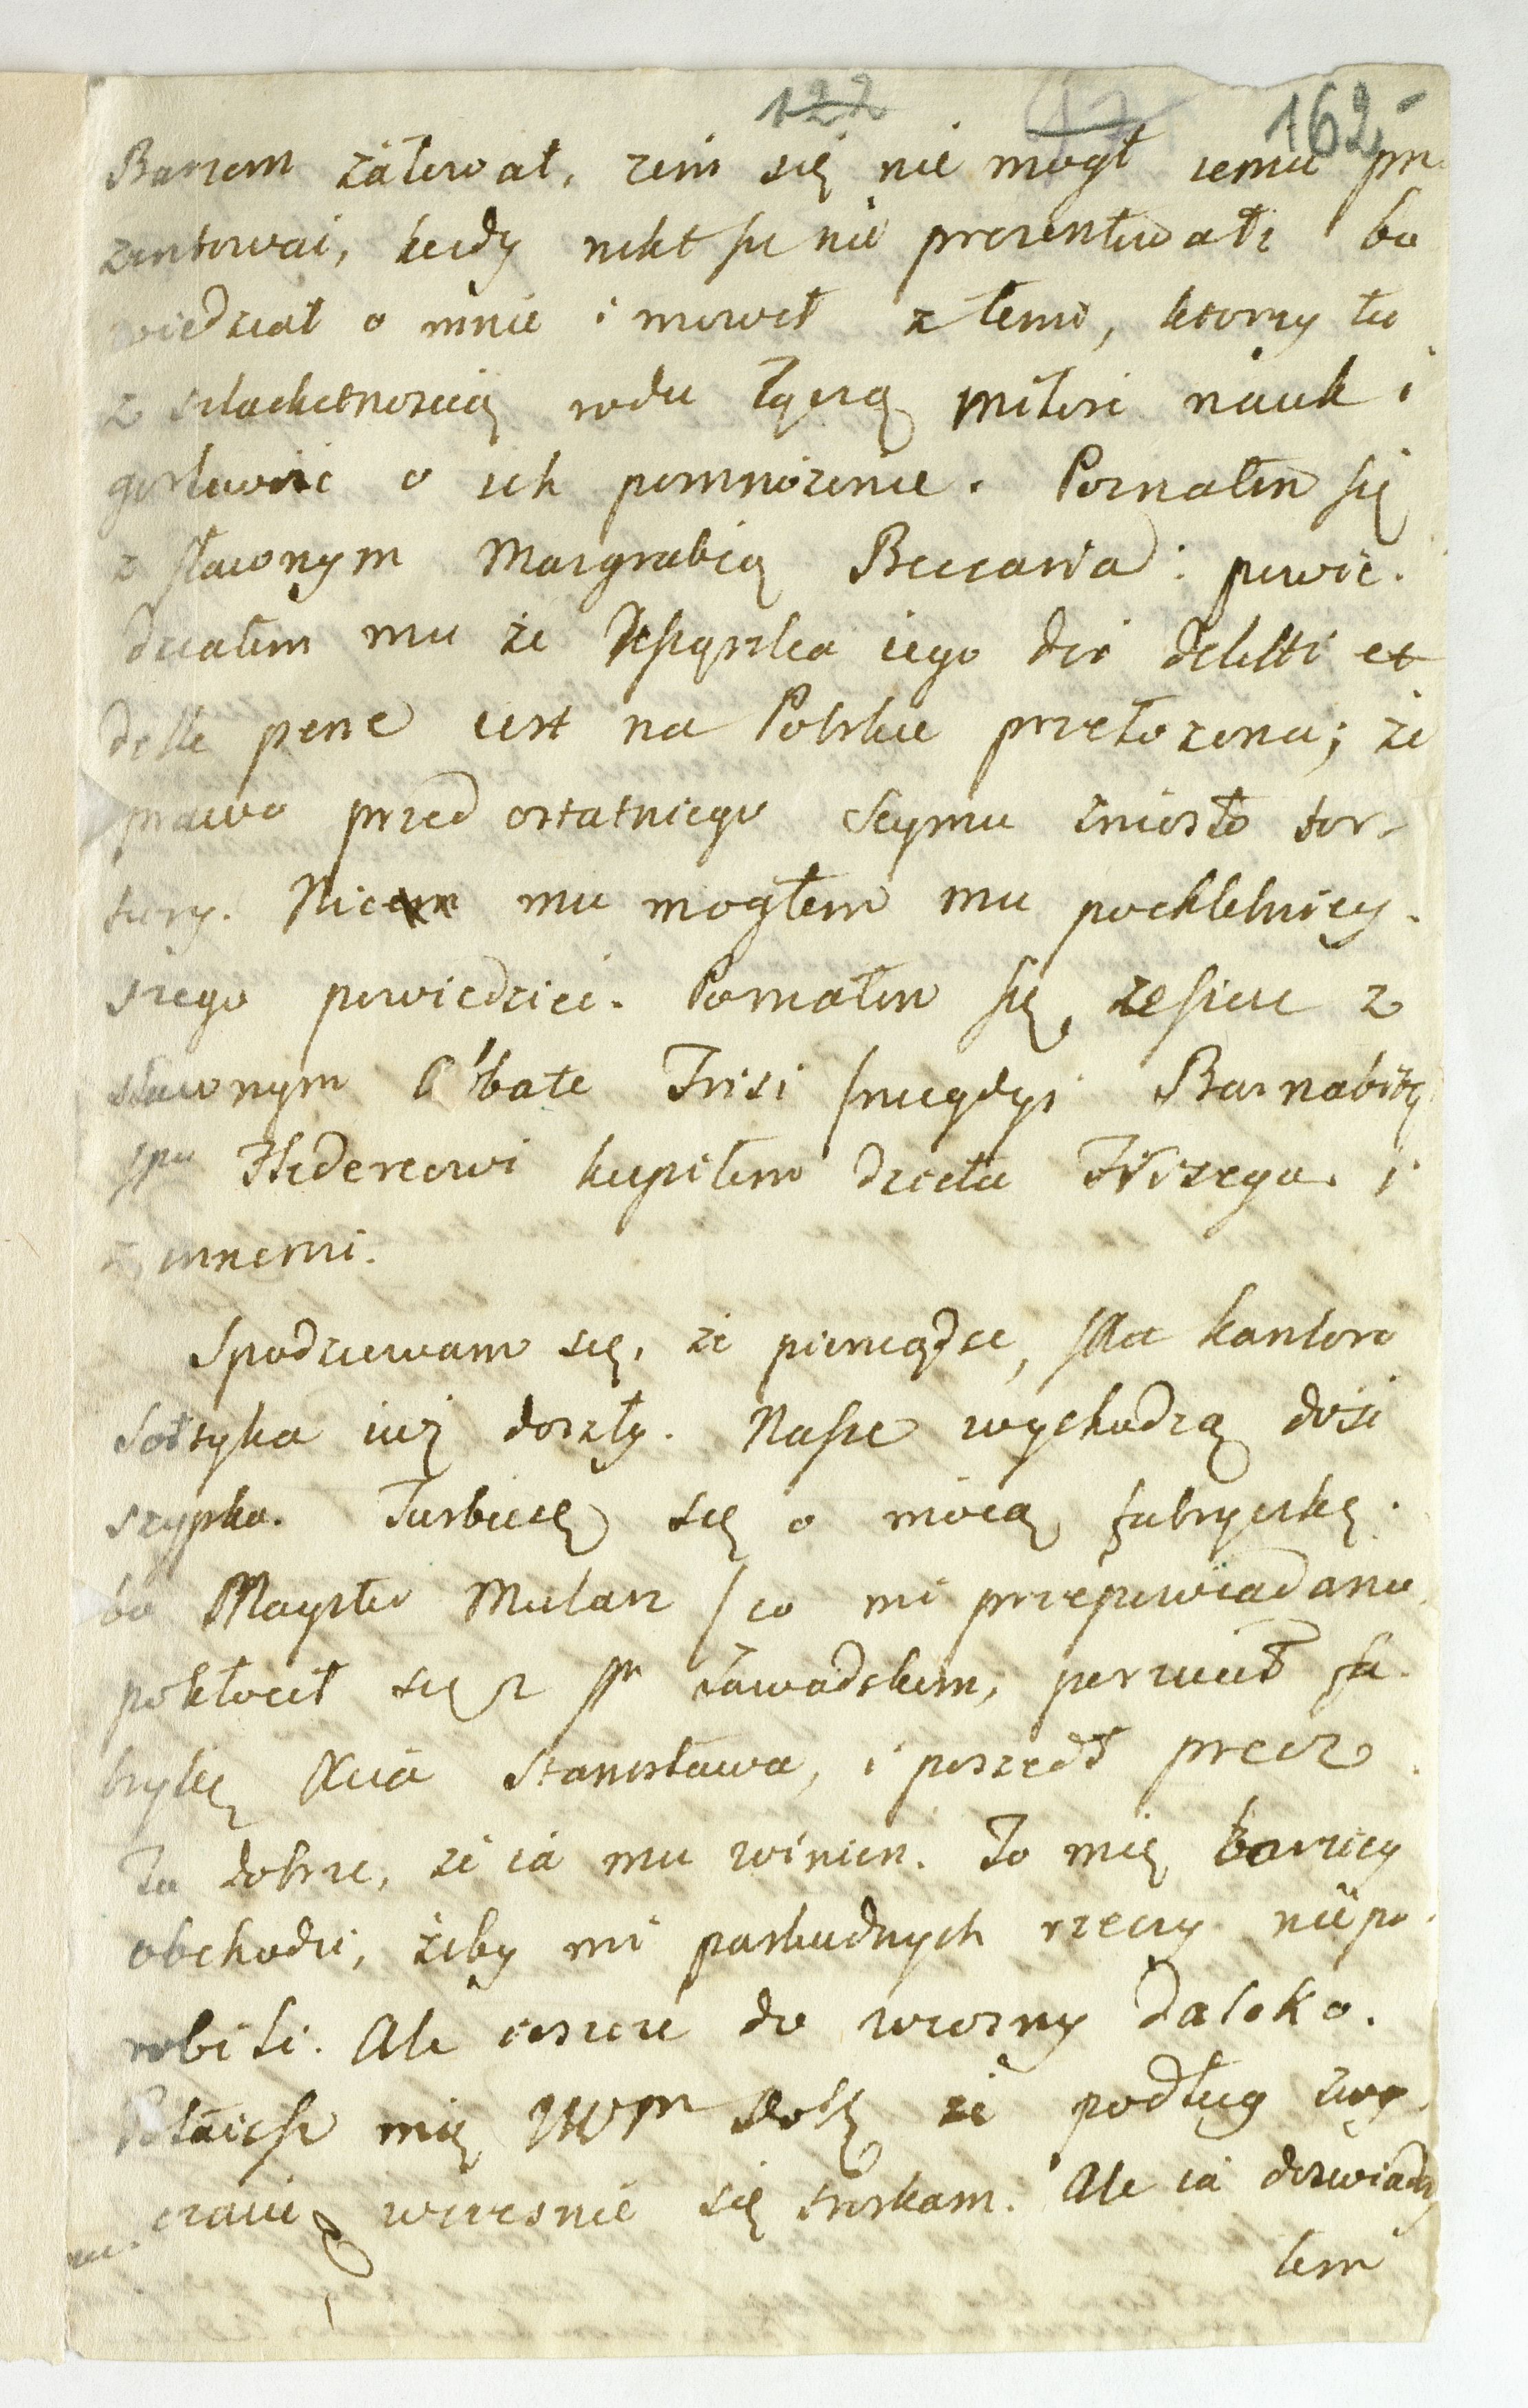 122 162
Barzom żałował, żem się nie mogł iemu pre
zentować, kiedy nikt się nie prezentował: bo
wiedział o mnie i mowił z temi, ktorzy tu
z szlachetnością rodu łączą miłosc nauk i
gorliwosc o ich pomnożenie. Poznałem się
z sławnym Margrabią Beccaria: powie-
działem mu że Xsiążka iego dei delitti et
delle pene iest na Polskie przełożona; że
prawo przed ostatniego Seymu zniosło tor-
tury. Nic mu mogłem mu pochlebnicy-
szego powiedzieć. Poznałem się, jeszcze z
sławnym Abate Frisi /niegdyś Barnabitą
Jpu Hederowi kupiłem dzieła Frisego. i
z innemi.
Spodziewam się, że pieniądze, dla kantoru
Sołtyka iuż doszły. Nasze wychodzą dość
szypko. Turbuię się o moią fabryczkę.
bo Mayster Mularz /co mi przepowiadano
pokłocił się z Jp Zawadzkim, porzucił fa-
brykę Xcia Stanisława, i poszedł precz
To dobrze, że ia mu winien. To mię barziey
obchodzi, żeby mi paskudnych rzeczy nie po-
robili. Ale ieszcze do wiosny daleko.
mię WPan że podług zwy-
czaiu wcześnie się troskam. Ale ia doświadcz
łem